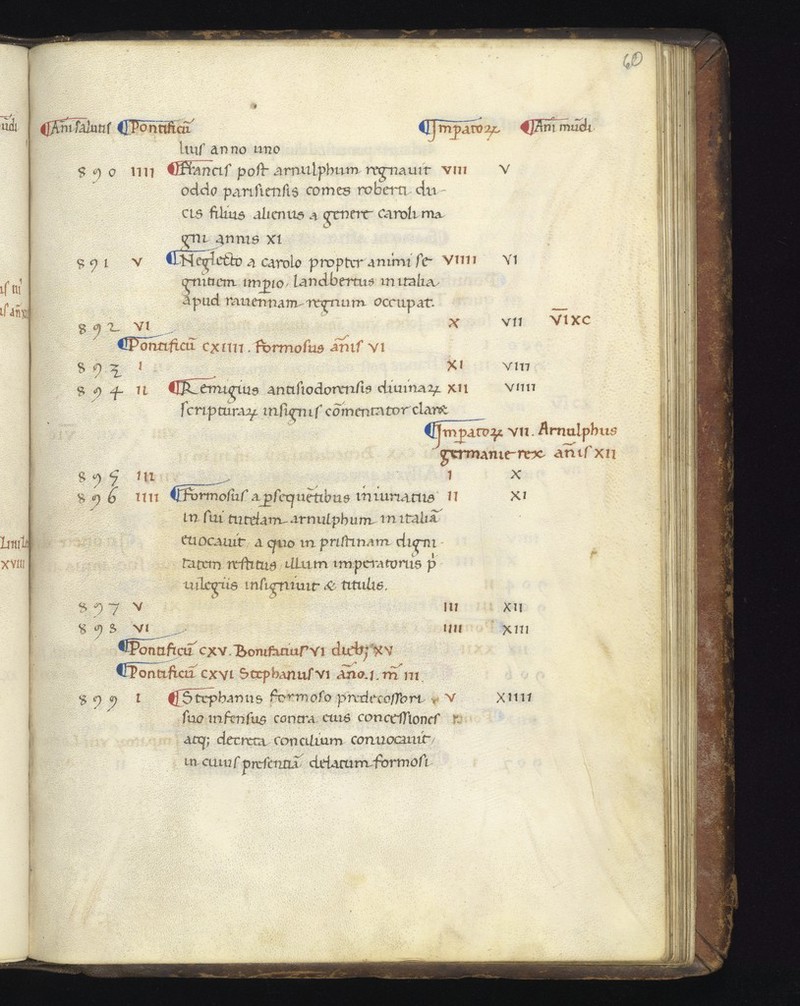 60
Añi salutis Pontificū Imꝑatoꝝ Añi mūdi
luis anno uno
890 IIII Francis post arnulphum regnauit VIII V
oddo parisiensis comes roberti du-
cis filius alienus a genere caroli ma
gni annis XI
891 V Neglecto a carolo propter animi se VIIII VI
gnitiem imꝑio landbertus in italia
apud rauennam regnum occupat.
892 VI X VII V̅I̅XC
Pontificū CXIIII. Formosus añis VI
893 I XI VIII
894 II Remigius antisiodorensis diuinaꝝ XII VIIII
scripturaꝝ insignis cōmentator claret
Imꝑatoꝝ VII. Arnulphus
germanie rex añis XII
895 III I X
896 IIII Formosus a ꝑsequētibus iniuriatus II XI
in sui tutelam arnulphum in italiā
euocauit a quo in pristinam digni
tatem restitus illum imperatoriis p
uilegiis insigniuit & titulis.
897 V III XII
898 VI IIII XIII
Pontificū CXV. Bonifatius VI dieb; XV
Pontificū CXVI Stephanus VI año. I. m̄ III.
899 I Stephanus formoso predecessori V XIIII
suo infensus contra eius concessiones
atq; decreta concilium conuocauit
in cuius presentiā delatum formosi